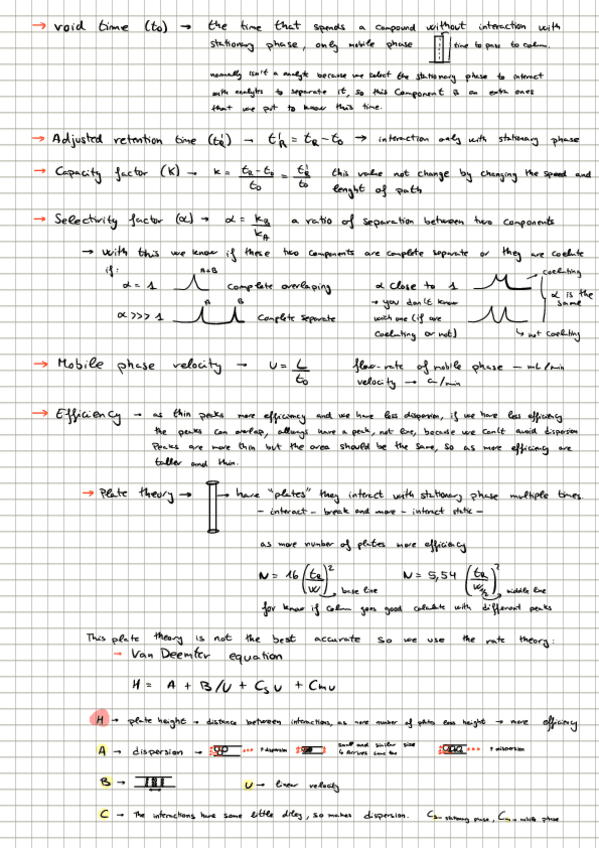 → void time (t₀) → the time that spends a compound without interaction with
stationary phase, only mobile phase time to pass to colum.
normally isn't a analyte because we select the stationary phase to interact
with analytes to separate it, so this component is an extra ones
that we put to know this time.
→ Adjusted retention time (t'R) → t'R = tR - t₀ → interaction only with stationary phase
→ Capacity factor (K) → k = (tR - t₀)/t₀ = t'R/t₀ this value not change by changing the speed and
lenght of path
→ Selectivity factor (α) → α = kB/kA a ratio of separation between two components
→ with this we know if these two components are complete separate or they are coelute
if: A+B coeluting
α = 1 complete overlaping α close to 1 α is the
A B → you don't know same
α >>> 1 complete separate with one (if are
coeluting or not) ↳ not coeluting
→ Mobile phase velocity → U = L/t₀ flow-rate of mobile phase - mL/min
velocity → c/min
→ Efficiency → as thin peaks more efficiency and we have less dispersion, if we have less efficiency
the peaks can overlap, allways have a peak, not line, because we can't avoid dispersion
Peaks are more thin but the area should be the same, so as more efficiency are
taller and thin.
→ Plate theory → → have "plates" they interact with stationary phase multiple times.
- interact - break and move - interact static -
as more number of plates more efficiency
N = 16 (tR/W)² base line N = 5,54 (tR/W½)² middle line
for know if colum goes good calculate with different peaks
This plate theory is not the best accurate so we use the rate theory:
→ Van Deemter equation
H = A + B/U + Cs U + Cm U
H → plate height → distance between interactions, as more number of plates less height → more efficiency
A → dispersion → ↑ dispersion small and similar size ↑ dispersion
B → U → linear velocity
C → The interactions have some little delay, so makes dispersion. Cs → stationary phase, Cm → mobile phase